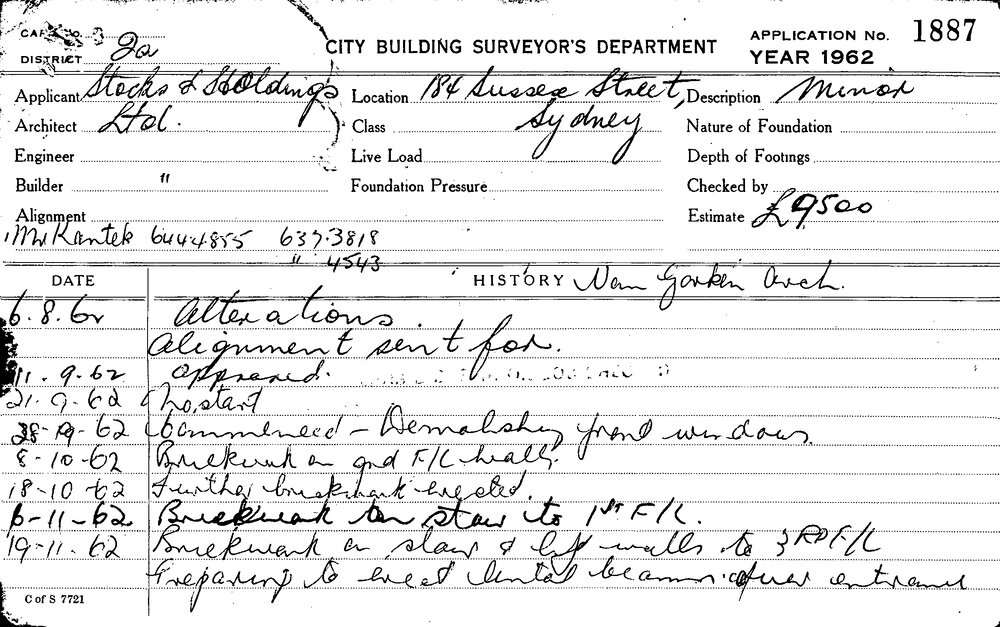 CITY BUILDING SURVEYOR'S DEPARTMENT
APPLICATION No. 1887
YEAR 1962
DISTRICT 2a
Applicant Stocks & Holdings Location 184 Sussex Street, Description Minor
Architect Ltd. Class Sydney Nature of Foundation
Engineer Live Load Depth of Footings
Builder " Foundation Pressure Checked by
Alignment Estimate £9500
Mr Kantek 644.4855 637.3818
" 4543
DATE HISTORY Arch.
6.8.62 Alterations.
Alignment sent for.
11.9.62 Approved.
21-9-62 No start
28-9-62 Commenced - Demolishing front windows.
8-10-62 Brickwork on gnd F/C walls.
18-10-62 Further brickwork erected.
6-11-62 Brickwork to stair to 1st F/C.
19-11-62 Brickwork on stair & lift walls to 3RD F/C
Preparing to erect lintel beams over entrance
C of S 7721